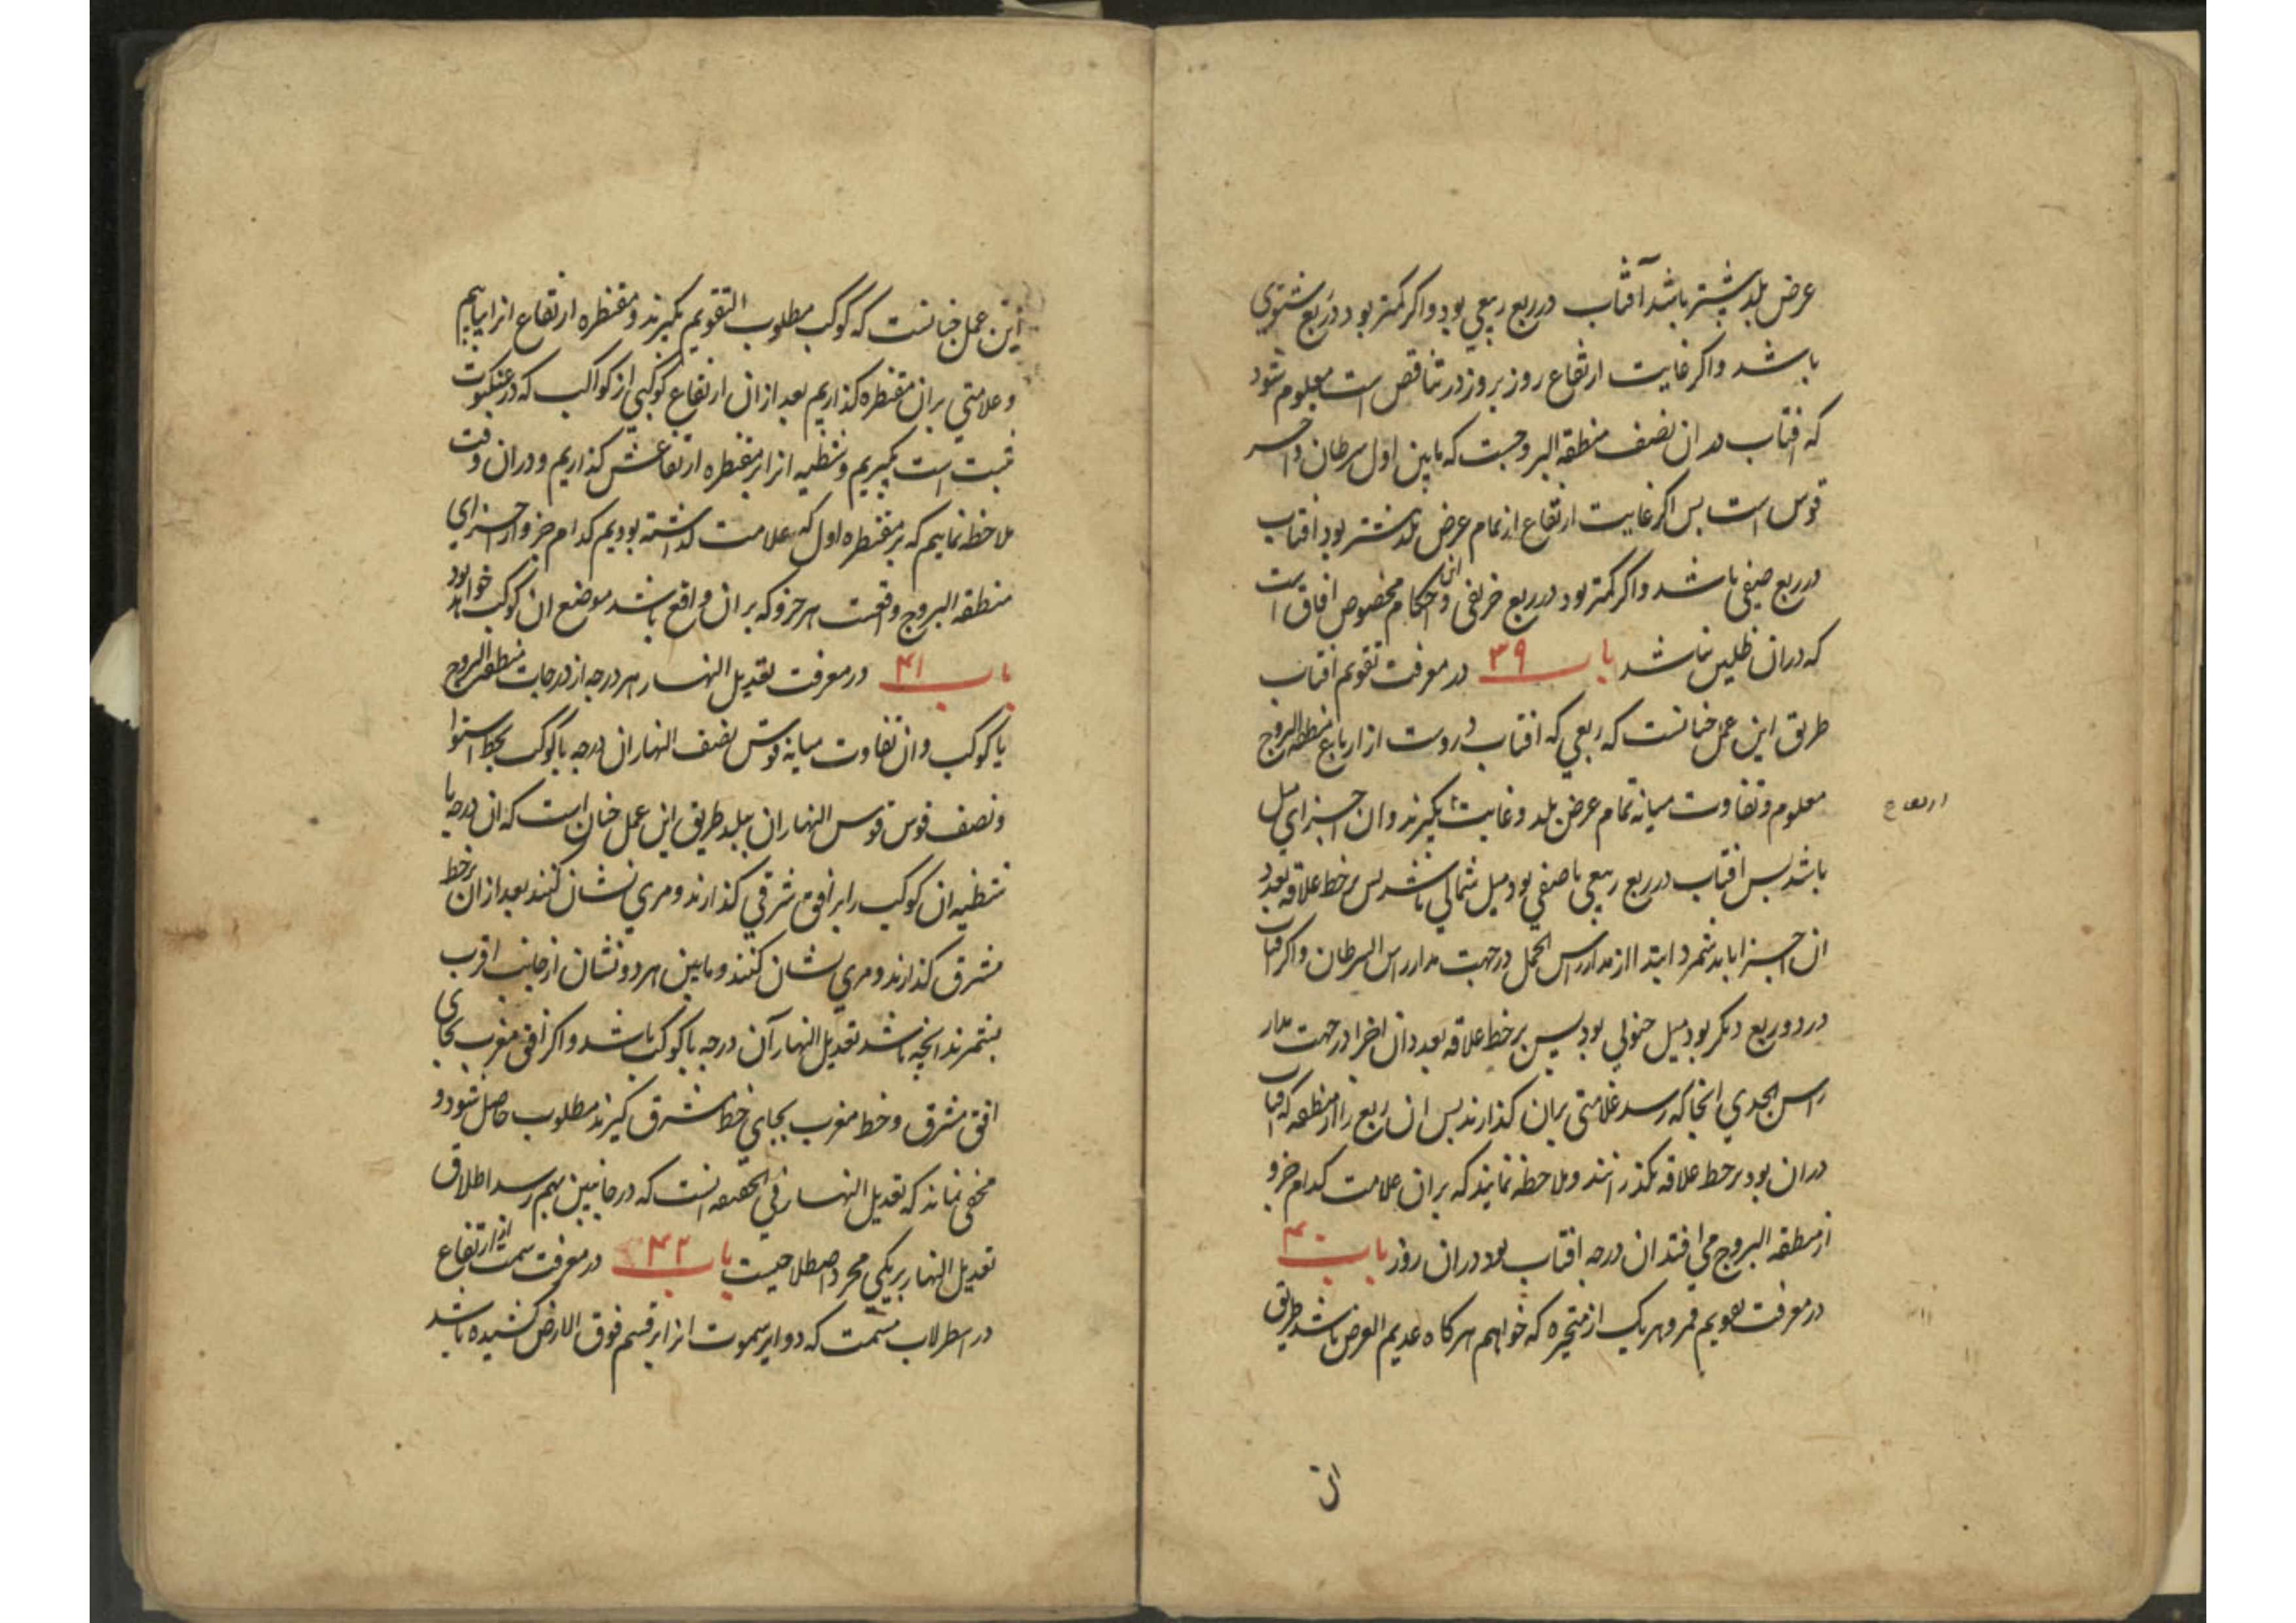 عرض بلد بیشتر باشد آفتاب در ربع ربیعی بود و اکر کمتر بود در ربع شتوی
باشد و اکر غایت ارتفاع روز بروز در تناقص است معلوم شود
که افتاب در ان نصف منطقه البروجست که مابین اول سرطان و اخر
قوس است پس اکر غایت ارتفاع از تمام عرض بلد بیشتر بود افتاب
در ربع صیفی باشد و اکر کمتر بود در ربع خریفی و این احکام مخصوص افاق است
که در ان ظلین نباشد باب ۳۹ در معرفت تقویم افتاب
طریق این عمل چنانست که ربعی که افتاب دروست از ارباع منطقه البروج
معلوم و تفاوت میانه تمام عرض بلد و غایت بکیرند و ان اجزای میل
ارتفاع
باشد پس افتاب در ربع ربیعی یا صیفی بود میل شمالی باشد پس بر خط علاقه بعدد
ان اجزا باید شمرد ابتدا از مدار راس الحمل در جهت مدار راس السرطان و اکر افتاب
در دو ربع دیکر بود میل جنوبی بود پس بر خط علاقه بعدد ان اجزا در جهت مدار
راس الجدی انجا که رسد علامتی بران کذارند پس ان ربع را از منطقه که افتاب
دران بود بر خط علاقه بکذرانند و ملاحظه نمایند که بران علامت کدام جزو
از منطقه البروج می افتد ان درجه افتاب بود دران روز باب ۴۰
در معرفت تقویم قمر و هر یک از متحیره که خواهیم هرکاه عدیم العرض باشد طریق
این
این عمل چنانست که کوکب مطلوب التقویم بکیرند و مقنطره ارتفاع انرا بیابیم
و علامتی بران مقنطره کذاریم بعد ازان ارتفاع کوکبی از کواکب که در عنکبوت
ثبت است بکیریم و شظیه انرا بر مقنطره ارتفاعش کذاریم و دران وقت
ملاحظه نماییم که بر مقنطره اول که علامت کذاشته بودیم کدام جزو از اجزای
منطقه البروج واقعست هر جزو که بران واقع باشد موضع ان کوکب خواهد بود
باب ۴۱ در معرفت تعدیل النهار هر درجه از درجات منطقه البروج
یا کوکب و ان تفاوت میانه قوس نصف النهار ان درجه یا کوکب بخط استوا
و نصف قوس قوس النهار ان ببلد طریق این عمل چنان است که ان درجه یا
شظیه ان کوکب را بر افق شرقی کذارند و مری نشان کنند بعد ازان بر خط
مشرق کذارند و مری نشان کنند و مابین هر دو نشان از جانب اقرب
بشمرند انچه باشد تعدیل النهار آن درجه یا کوکب باشد و اکر افق مغرب بجای
افق مشرق و خط مغرب بجای خط مشرق کیرند مطلوب حاصل شود و
مخفی نماند که تعدیل النهار فی الحقیقه انست که در جانبین بهم رسد اطلاق
تعدیل النهار بر یکی مجرد اصطلاحیست باب ۴۲ در معرفت سمت از ارتفاع
در اسطرلاب مسمت که دوایر سموت انرا بر قسم فوق الارض کشیده باشد